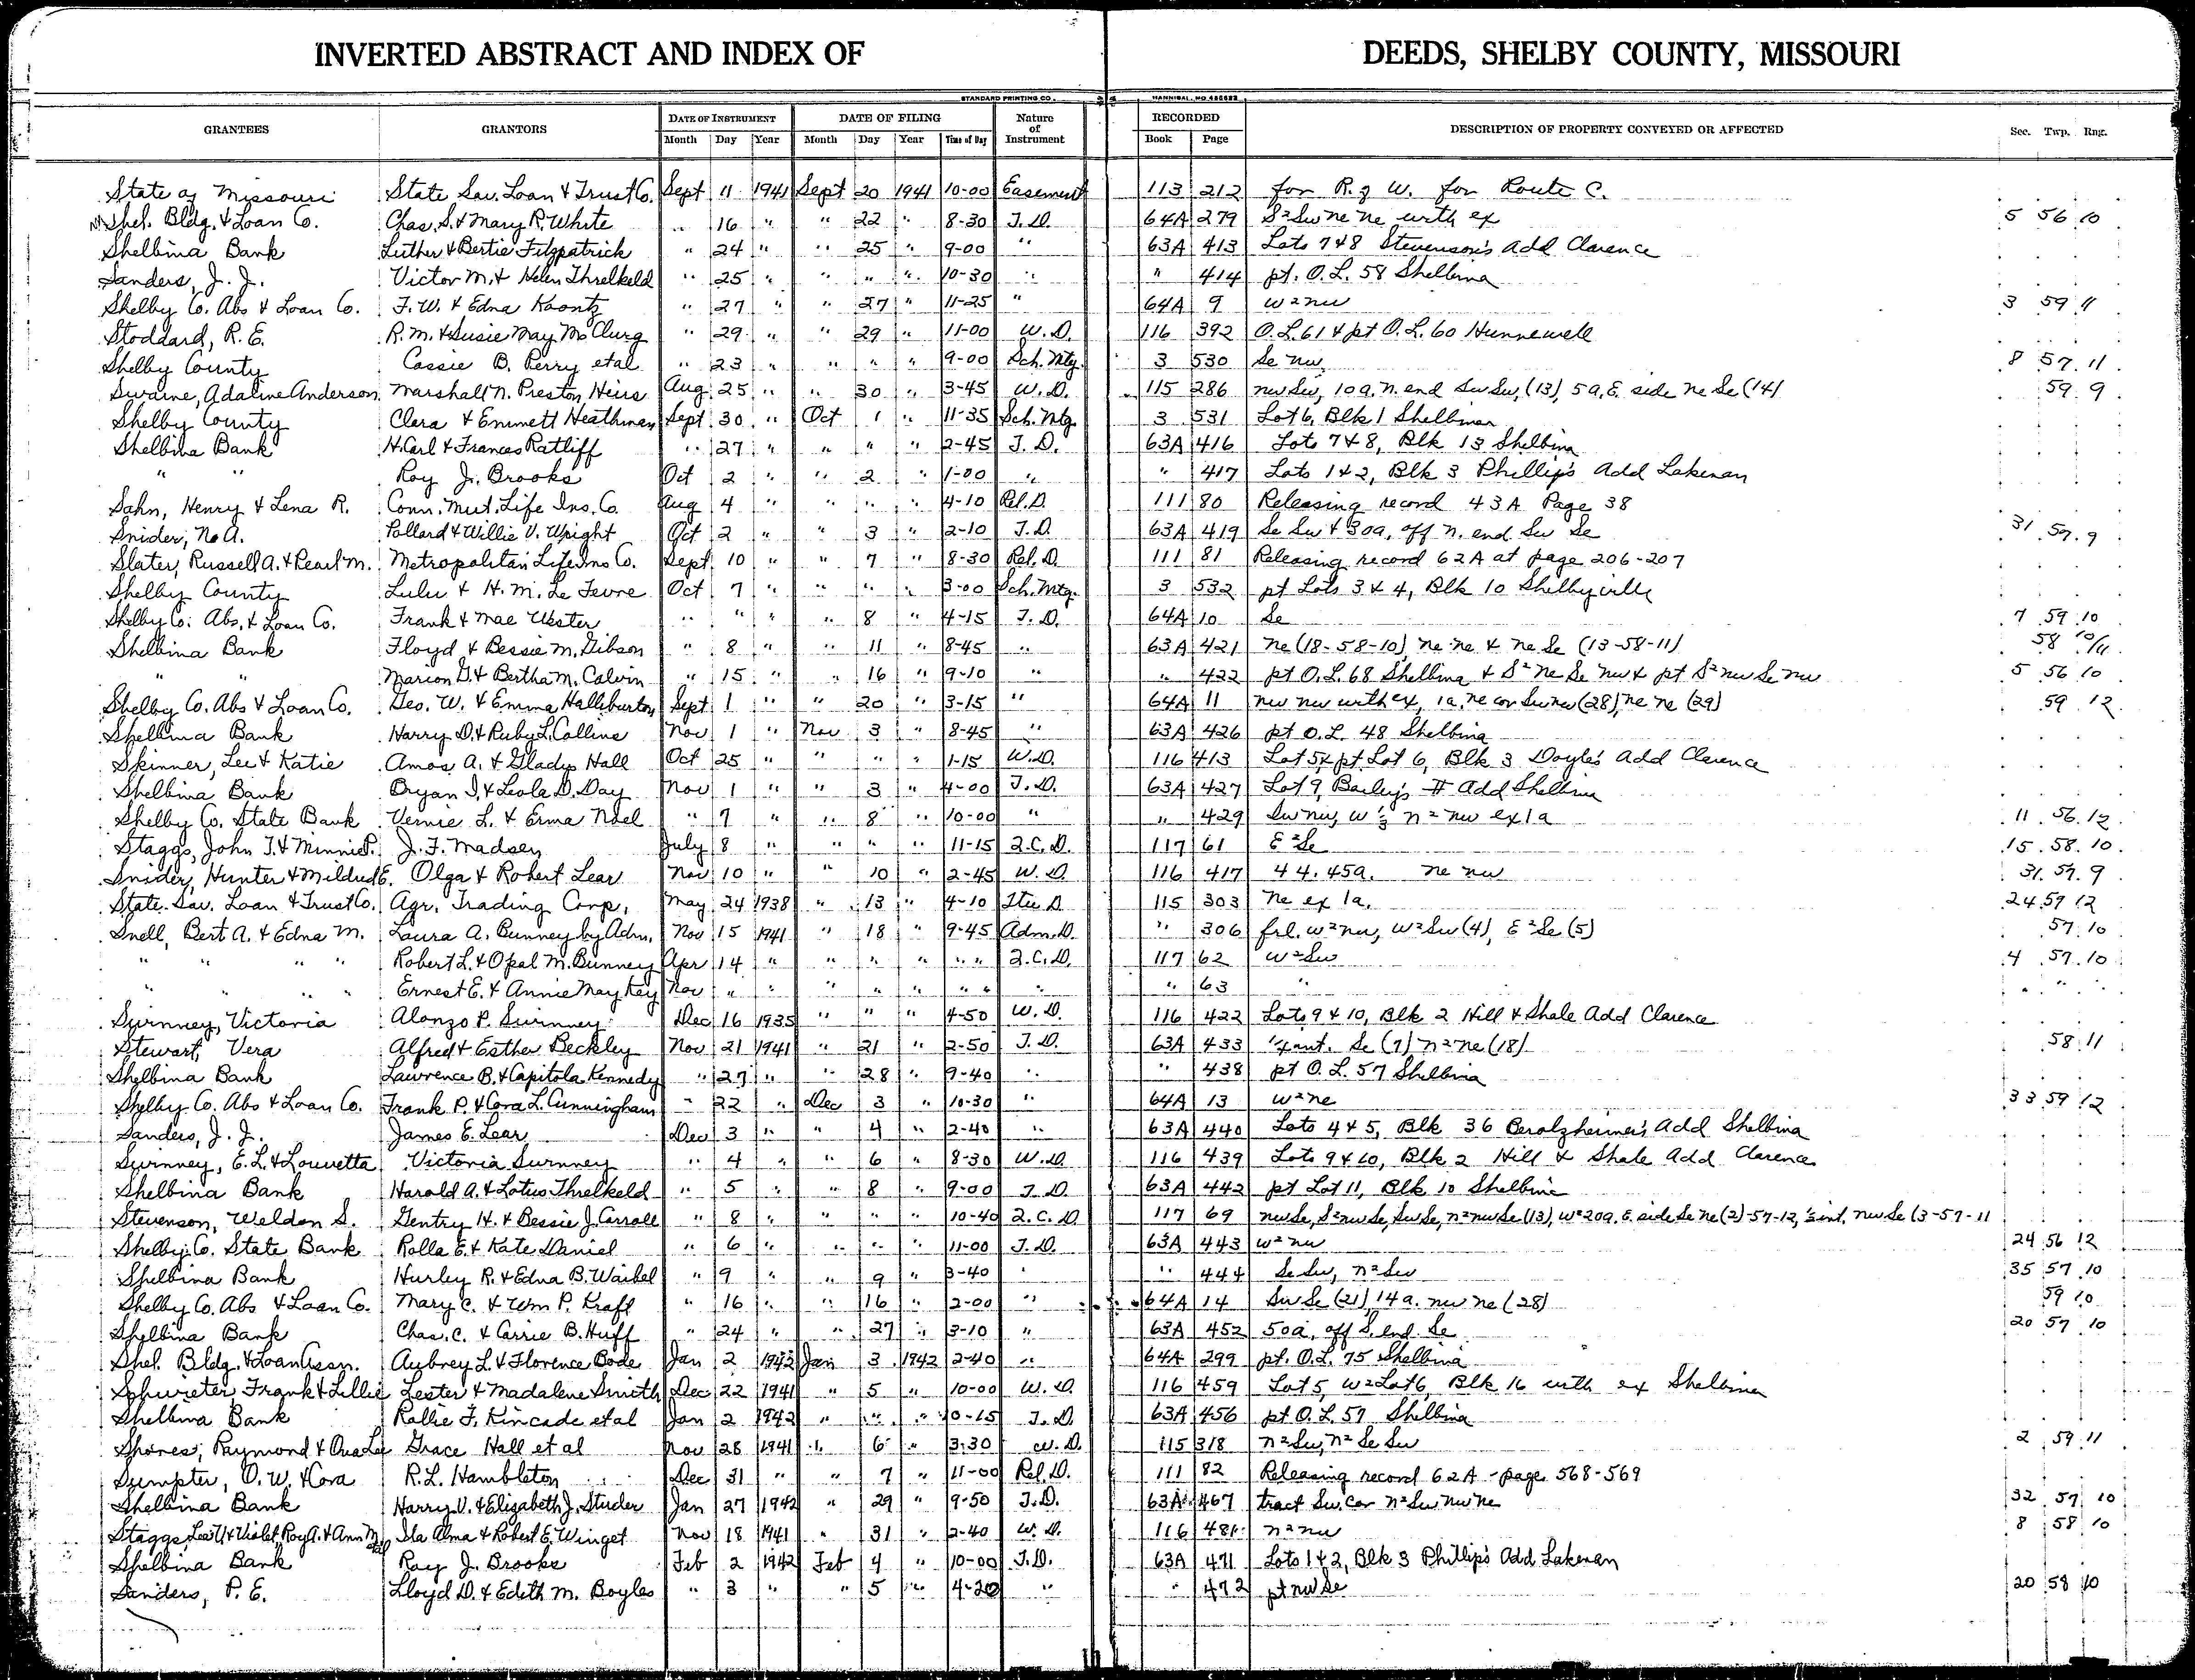 INVERTED ABSTRACT AND INDEX OF DEEDS, SHELBY COUNTY, MISSOURI
STANDARD PRINTING CO. HANNIBAL, MO
GRANTEES GRANTORS DATE OF INSTRUMENT DATE OF FILING Nature of Instrument RECORDED DESCRIPTION OF PROPERTY CONVEYED OR AFFECTED Sec. Twp. Rng.
Month Day Year Month Day Year Time of Day Book Page
State of Missouri State Sav. Loan & Trust Co. Sept 11 1941 Sept 20 1941 10-00 Easement 113 212 for R. of W. for Route C.
Shel. Bldg. & Loan Co. Chas. S. & Mary R. White " 16 " " 22 " 8-30 T.D. 64A 279 S²Sw ne ne with ex 5 56 10
Shelbina Bank Luther & Bertie Fitzpatrick " 24 " " 25 " 9-00 " 63A 413 Lots 7 & 8 Stevenson's Add Clarence
Sanders, J. J. Victor M. & Helen Threlkeld " 25 " " " " 10-30 " " 414 pt. O.L. 58 Shelbina
Shelby Co. Abs & Loan Co. F. W. & Edna Koontz " 27 " " 27 " 11-25 " 64A 9 w²nw 3 59 11
Stoddard, R. E. R. M. & Susie May McClurg " 29 " " 29 " 11-00 W.D. 116 392 O.L. 61 & pt O.L. 60 Hunnewell
Shelby County Cassie B. Perry etal " 23 " " " " 9-00 Sch. Mtg. 3 530 Se nw. 8 57 11
Swaine, Adaline Anderson Marshall N. Preston, Heirs Aug 25 " " 30 " 3-45 W.D. 115 286 nw Sw, 10a. n. end Sw Sw, (13), 5a. E. side Ne Se (14) 59 9
Shelby County Clara & Emmett Heathman Sept 30 " Oct 1 " 11-35 Sch. Mtg. 3 531 Lot 6, Blk 1 Shelbina
Shelbina Bank H. Carl & Frances Ratliff " 27 " " " " 2-45 T.D. 63A 416 Lots 7 & 8, Blk 13 Shelbina
" " Roy J. Brooks Oct 2 " " 2 " 1-00 " " 417 Lots 1 & 2, Blk 3 Phillip's Add Lakenan
Sahn, Henry & Lena R. Conn. Mut. Life Ins. Co. Aug 4 " " " " 4-10 Rel. D. 111 80 Releasing record 43A Page 38
Snider, No A. Pollard & Willie V. Wright Oct 2 " " 3 " 2-10 T.D. 63A 419 Se Sw & 30a, off n. end Sw Se 31 59 9
Slater, Russell A. & Pearl M. Metropolitan Life Ins Co. Sept 10 " " 7 " 8-30 Rel. D. 111 81 Releasing record 62A at page 206-207
Shelby County Lulu & H. M. Le Fevre Oct 7 " " " " 3-00 Sch. Mtg. 3 532 pt Lots 3 & 4, Blk 10 Shelbyville
Shelby Co. Abs. & Loan Co. Frank & Mae Uster " " " " 8 " 4-15 T.D. 64A 10 Se 7 59 10
Shelbina Bank Floyd & Bessie M. Gibson " 8 " " 11 " 8-45 " 63A 421 Ne (18-58-10), Ne Ne & Ne Se (13-58-11) 58 10/11
" " Marion G. & Bertha M. Calvin " 15 " " 16 " 9-10 " " 422 pt O.L. 68 Shelbina & S² Ne Se Nw & pt S² nw Se nw 5 56 10
Shelby Co. Abs & Loan Co. Geo. W. & Emma Halliburton Sept 1 " " 20 " 3-15 " 64A 11 nw nw with ex, 1a, ne cor Sw nw (28), ne ne (29) 59 12
Shelbina Bank Harry D. & Ruby L. Collins Nov 1 " Nov 3 " 8-45 " 63A 426 pt O.L. 48 Shelbina
Skinner, Lee & Katie Amos A. & Gladys Hall Oct 25 " " " " 1-15 W.D. 116 413 Lot 5 & pt Lot 6, Blk 3 Doyle's Add Clarence
Shelbina Bank Bryan I. & Leola D. Day Nov 1 " " 3 " 4-00 T.D. 63A 427 Lot 9, Bailey's II Add Shelbina
Shelby Co. State Bank Vernie L. & Erma Noel " 7 " " 8 " 10-00 " " 429 Sw nw, w ½ n² nw ex 1a 11 56 12
Staggs, John T. & Minnie P. J. F. Madsen July 8 " " " " 11-15 Q.C.D. 117 61 E²Se 15 58 10
Snider, Hunter & Mildred E. Olga & Robert Lear Nov 10 " " 10 " 2-45 W.D. 116 417 44.45a. ne nw 31 59 9
State Sav. Loan & Trust Co. Agr. Trading Corp. May 24 1938 " 13 " 4-10 Stee D 115 303 Ne ex 1a. 24 57 12
Snell, Bert A. & Edna M. Laura A. Bunney by Adm. Nov 15 1941 " 18 " 9-45 Adm. D. " 306 frl. w²nw, W²Sw (4), E²Se (5) 57 10
" " " " Robert L. & Opal M. Bunney Apr 14 " " " " " " Q.C.D. 117 62 W²Sw 4 57 10
" " " " Ernest E. & Annie May Key Nov " " " " " " " " " 63 " " " "
Swinney, Victoria Alonzo P. Swinney Dec 16 1935 " " " 4-50 W.D. 116 422 Lots 9 & 10, Blk 2 Hill & Shale Add Clarence
Stewart, Vera Alfred & Esther Beckley Nov 21 1941 " 21 " 2-50 T.D. 63A 433 Se (7) n²ne (18) 58 11
Shelbina Bank Lawrence B. & Capitola Kennedy " 27 " " 28 " 9-40 " " 438 pt O.L. 57 Shelbina
Shelby Co. Abs & Loan Co. Frank P. & Cora L. Cunningham " 22 " Dec 3 " 10-30 " 64A 13 w²ne 33 59 12
Sanders, J. J. James E. Lear Dec 3 " " 4 " 2-40 " 63A 440 Lots 4 & 5, Blk 36 Berolzheimer's Add Shelbina
Swinney, E. L. & Louvetta Victoria Swinney " 4 " " 6 " 8-30 W.D. 116 439 Lots 9 & 10, Blk 2 Hill & Shale Add Clarence
Shelbina Bank Harold A. & Lotus Threlkeld " 5 " " 8 " 9-00 T.D. 63A 442 pt Lot 11, Blk 10 Shelbina
Stevenson, Weldon S. Gentry H. & Bessie J. Carroll " 8 " " " " 10-40 Q.C.D. 117 69 nw Se, S²nw Se, Sw Se, n²nw Se (13), w²20a. E. side Se ne (2)-57-12, ½ int. nw Se (3-57-11
Shelby Co. State Bank Rolla E. & Kate Daniel " 6 " " " " 11-00 T.D. 63A 443 w²nw 24 56 12
Shelbina Bank Hurley R. & Edna B. Waibel " 9 " " 9 " 3-40 " " 444 Se Sw, n²Sw 35 57 10
Shelby Co. Abs & Loan Co. Mary C. & Wm P. Kraft " 16 " " 16 " 2-00 " 64A 14 Sw Se (21), 14a. nw ne (28) 59 10
Shelbina Bank Chas. C. & Carrie B. Huff " 24 " " 27 " 3-10 " 63A 452 50a, off S. end Se 20 57 10
Shel. Bldg. & Loan Assn. Aubrey L. & Florence Bode Jan 2 1942 Jan 3 1942 2-40 " 64A 299 pt. O.L. 75 Shelbina
Schwieter, Frank & Lillie Lester & Madalene Smith Dec 22 1941 " 5 " 10-00 W.D. 116 459 Lot 5, W²Lot 6, Blk 16 with ex Shelbina
Shelbina Bank Rallie F. Kincade et al Jan 2 1942 " " " 10-15 T.D. 63A 456 pt O.L. 57 Shelbina
Shores, Raymond & Ova Lee Grace Hall et al Nov 28 1941 " 6 " 3:30 W.D. 115 318 n²Sw, n² Se Sw 2 59 11
Sumpter, O. W. & Cora R. L. Hambleton Dec 31 " " 7 " 11-00 Rel. D. 111 82 Releasing record 62A - page 568-569
Shelbina Bank Harry V. & Elizabeth J. Studer Jan 27 1942 " 29 " 9-50 T.D. 63A 467 tract Sw. cor n²Sw nw ne 32 57 10
Staggs, Lee V. & Violet, Roy A. & Ann M. Ida Alma & Robert E. Winget Nov 18 1941 " 31 " 2-40 W.D. 116 481 n²nw 8 58 10
Shelbina Bank Ray J. Brooks Feb 2 1942 Feb 4 " 10-00 T.D. 63A 471 Lots 1 & 2, Blk 3 Phillip's Add Lakenan
Sanders, P. E. Lloyd D. & Edith M. Boyles " 3 " " 5 " 4-20 " " 472 pt nw Se 20 58 10